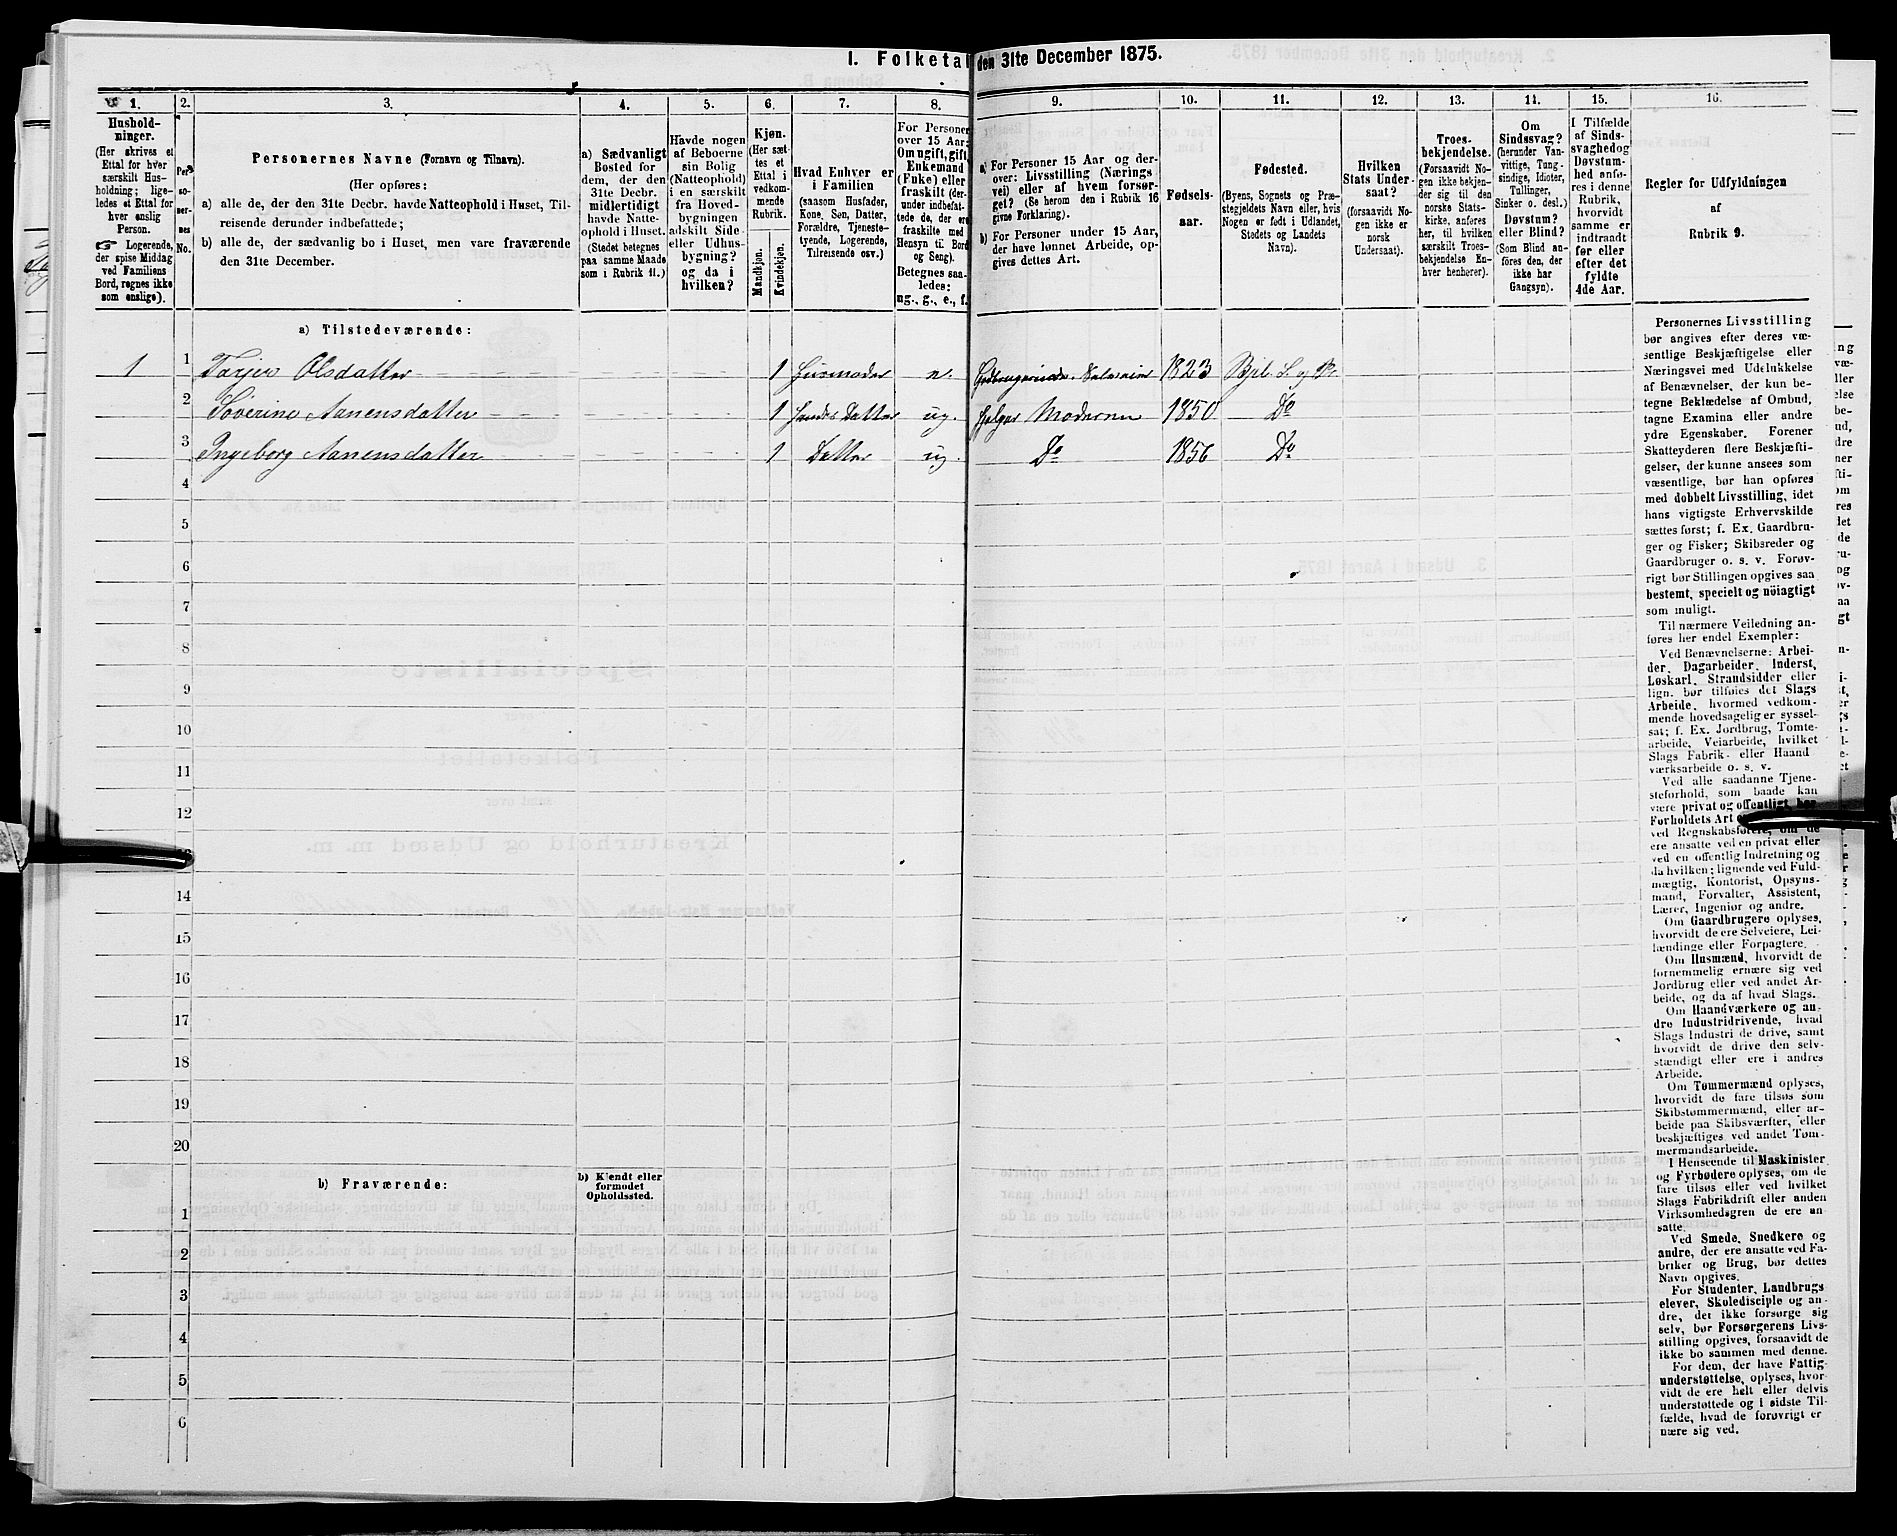 I. Folketal den 31te December 1875.
1. 2. 3. 4. 5. 6. 7. 8. 9. 10. 11. 12. 13. 14. 15. 16.
Hushold-
ninger.
(Her skrives et
Ettal for hver
særskilt Hus-
holdning; lige-
ledes et Ettal
for hver enslig
Person.
☞ Logerende,
der spise Middag
ved Familiens
Bord, regnes ikke
som enslige).
Per-
so-
ner-
nes
No.
Personernes Navne (Fornavn og Tilnavn).
(Her opføres:
a) alle de, der den 31te Decbr. havde Natteophold i Huset, Til-
reisende derunder indbefattede;
b) alle de, der sædvanlig bo i Huset, men vare fraværende
den 31te December.
a) Sædvanligt
Bosted for
dem, der den
31te Decbr.
midlertidigt
havde Natte-
ophold i Huset.
(Stedet betegnes
paa samme Maade
som i Rubrik 11.)
Havde nogen
af Beboerne
sin Bolig
(Natteophold)
i en særskilt
fra Hoved-
bygningen
adskilt Side-
eller Udhus-
bygning?
og da i
hvilken?
Kjøn.
(Her sæt-
tes et
Ettal i
vedkom-
mende
Rubrik.
Mandkjøn.
Kvindekjøn.
Hvad Enhver er
i Familien
(saasom Husfader,
Kone, Søn, Datter,
Forældre, Tjeneste-
tyende, Logerende,
Tilreisende osv.)
For Personer
over 15 Aar:
Om ugift, gift,
Enkemand
(Enke) eller
fraskilt
under indbefat-
tede de, der ere
fraskilte med
Hensyn til Bord
og Seng).
Betegnes saa-
ledes:
ug., g., e., f.
a) For Personer 15 Aar og der-
over: Livsstilling (Nærings
vei) eller af hvem forsør-
get? (Se herom den i Rubrik 16
givne Forklaring).
b) For Personer under 15 Aar,
der have lønnet Arbeide, op-
gives dettes Art.
Fødsels-
aar.
Fødested.
(Byens, Sognets og Præ-
stegjeldets Navn eller, hvis
Nogen er født i Udlandet,
Stedets og Landets
Navn).
Hvilken
Stats Under-
saat?
(forsaavidt No-
gen ikke er
norsk
Undersaat).
Troes-
bekjendelse.
(Forsaavidt No-
gen ikke bekjen-
der sig til den
norske Stats-
kirke. anføres
her, til hvilken
særskilt Troes-
bekjendelse En-
hver henhører).
Om
Sindssvag?
(herunder Van-
vittige, Tung-
sindige, Idioter,
Tullinger,
Sinker o. desl.)
Døvstum?
eller Blind?
(Som Blind an-
føres den, der
ikke har
Gangsyn).
I Tilfælde
af Sinds-
svaghed og
Døvstum-
hed anfø-
res i denne
Rubrik,
hvorvidt
samme er
indtraadt
før eller
efter det
fyldte
4de Aar.
Regler for Udfyldningen
af
Rubrik 9.
a) Tilstedeværende:
1 1 Olsdatter 1 Husmoder 1823
2 Aanensdatter 1 Datter ug. hjelper Moderen 1850 Do
3 Ingeborg Aanensdatter 1 Datter ug. Do 1856 Do
4
5
6
7
8
9
10
11
12
14
15
16
17
18
19
20
b) Fraværende:
b) Kjendt eller
formodet
Opholdssted.
1
2
3
4
5
6
Personernes Livsstilling
bør angives efter deres væ-
sentlige Beskjæftigelse eller
Næringsvei med Udelukkelse
af Benævnelser, der kun be-
tegne Beklædelse af Ombud,
tagne Examina eller andre
ydre Egenskaber. Forener
Skatteyderen flere Beskjæfti-
gelser, der kunne ansees som
væsentlige, bør han opføres
med dobbelt Livsstilling, idet
hans vigtigste Erhvervskilde
sættes først; f. Ex. Gaardbru-
ger og Fisker; Skibsreder og
Gaardbruger o. s. v. Forøv-
rigt bør Stillingen opgives saa
bestemt, specielt og nöiagtigt
som muligt.
Til nærmere Veiledning an-
føres her endel Exempler:
Ved Benævnelserne: Arbei-
der, Dagarbeider, Inderst,
Løskarl, Strandsidder eller
lign. bør tilføies det Slags
Arbeide, hvormed vedkom-
mende hovedsagelig er syssel-
sat; f. Ex. Jordbrug, Tomte-
arbeide, Veiarbeide, hvilket
Slags Fabrik- eller Haand
værksarbeide o. s. v.
Ved alle saadanne Tjene-
steforhold, som baade kan
være privat og offentligt, bør
Forholdets Art
ved Regnskabsførere, om de
ere ansatte ved en privat eller
ved en offentlig Indretning og
da hvilken; lignende ved Fuld-
mægtig, Kontorist, Opsyns-
mand, Forvalter, Assistent,
Lærer, Ingeniør og andre.
Om Gaardbrugere oplyses,
hvorvidt de ere Selveiere, Lei-
lændinge eller Forpagtere.
Om Husmænd, hvorvidt de
fornemmelig ernære sig ved
Jordbrug eller ved andet Ar-
beide, og da af hvad Slags.
Om Haandværkere og an-
dre Industridrivende, hvad
Slags Industri de drive, samt
hvorvidt de drive den selv-
stændigt eller ere i andres
Arbeide.
Om Tømmermænd oplyses,
hvorvidt de fare tilsøs som
Skibstømmermænd, eller ar-
beide paa Skibsværfter, eller
beskjæftiges ved andet Tøm-
mermandsarbeide.
I Henseende til Maskinister
og Fyrbødere oplyses, om de
fare tilsøs eller ved hvilket
Slags Fabrikdrift eller anden
Virksomhedsgren de ere an-
satte.
Ved Smede, Snedkere og
andre, der ere ansatte ved Fa-
briker og Brug, bør dettes
Navn opgives.
For Studenter, Landbrugs
elever, Skoledisciple og an-
dre, det ikke forsørge sig
selv, bør Forsørgerens Livs-
stilling opgives, forsaavidt de
ikke bo sammen med denne.
For dem, der have Fattig-
understøttelse, oplyses, hvor-
vidt de ere helt eller delvis
understøttede og i sidste Til-
fælde, hvad de forøvrigt er
nære sig ved.